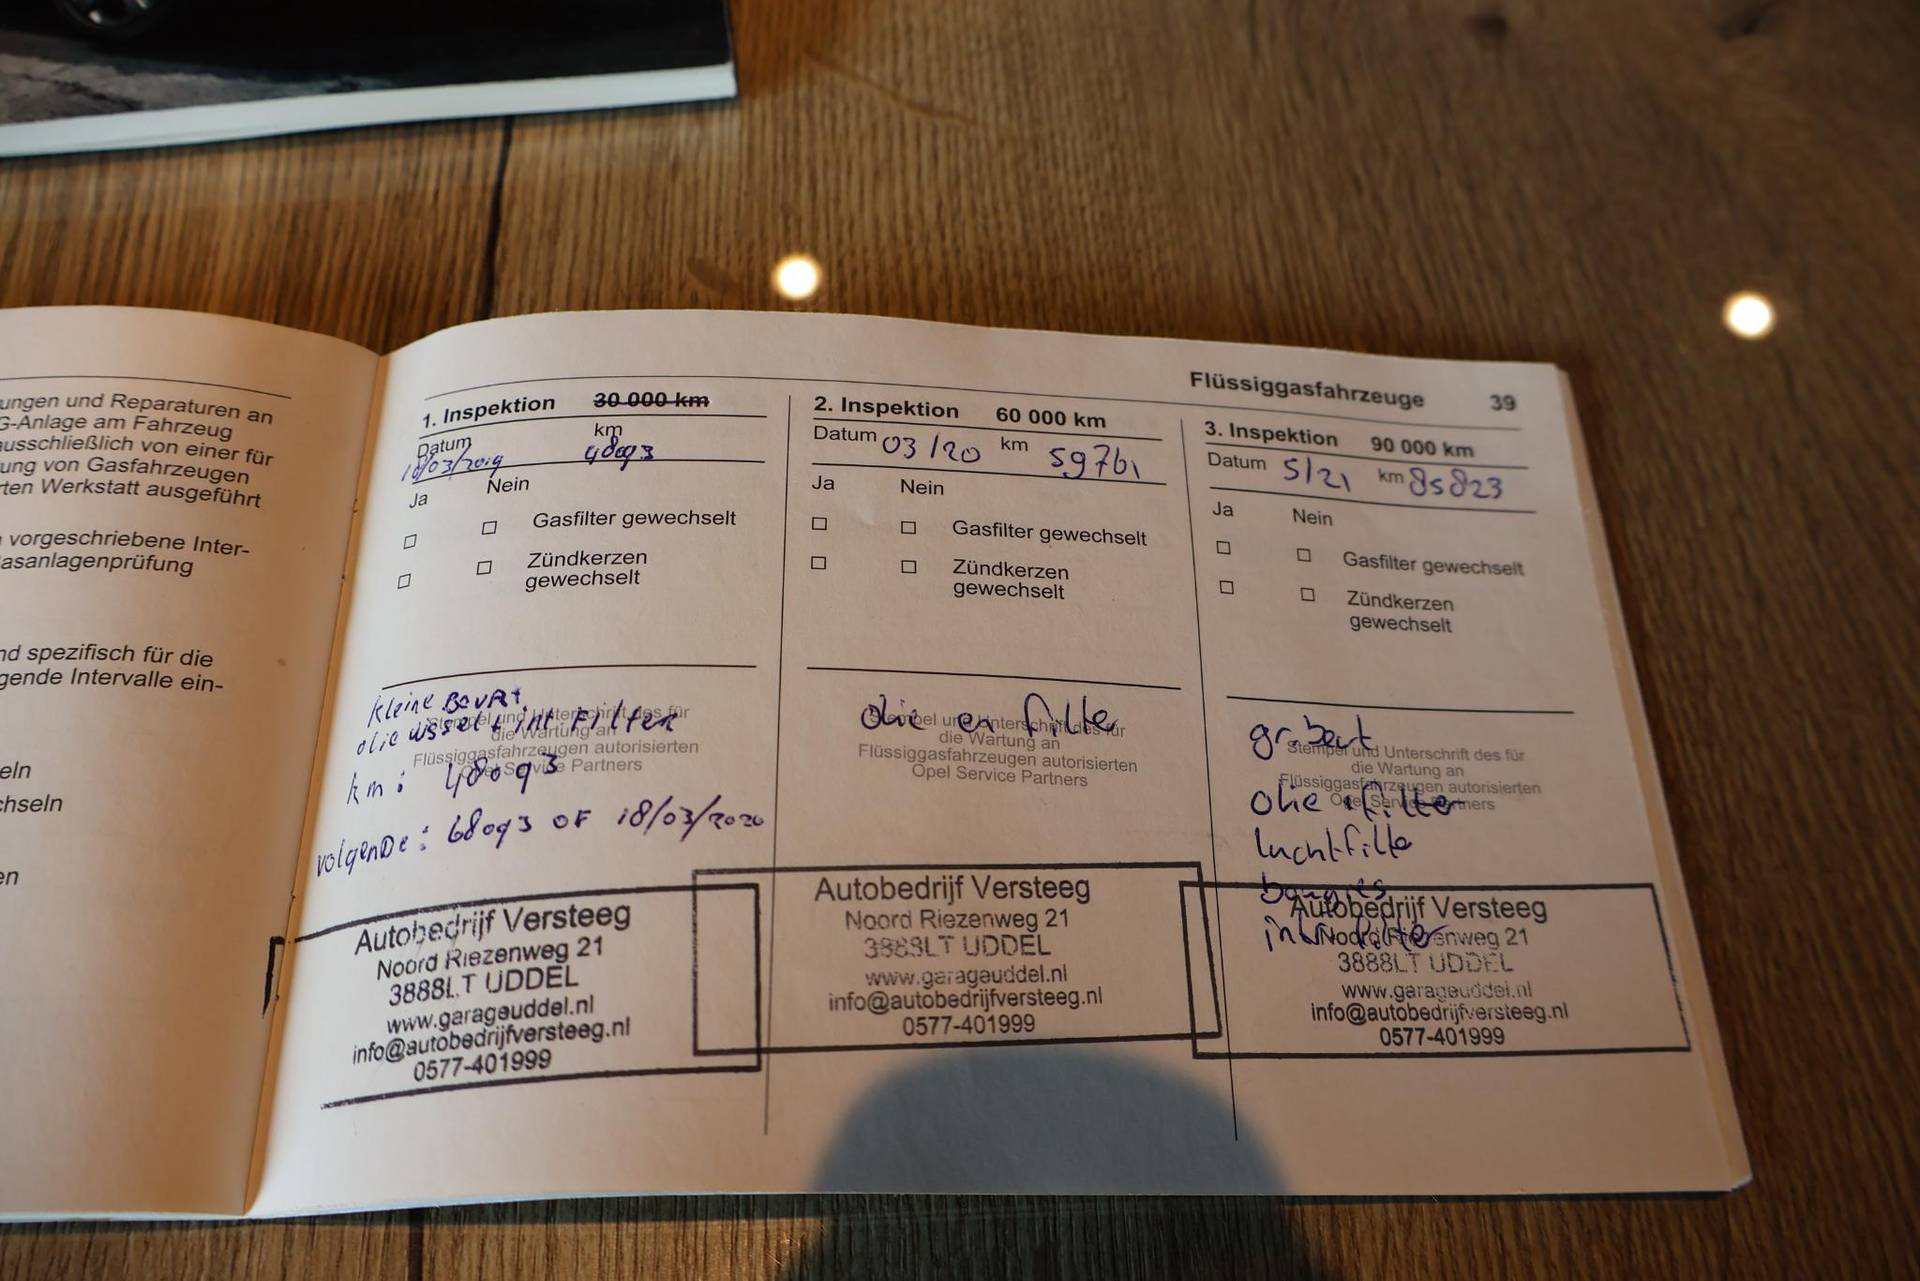 ungen und Reparaturen an
G-Anlage am Fahrzeug
ausschließlich von einer für
ung von Gasfahrzeugen
rten Werkstatt ausgeführt
vorgeschriebene Inter-
asanlagenprüfung
nd spezifisch für die
gende Intervalle ein-
eln
chseln
en
Flüssiggasfahrzeuge 39
1. Inspektion 30 000 km
Datum km
18/03/2019 48093
Ja Nein
Gasfilter gewechselt
Zündkerzen
gewechselt
kleine Beurt.
olie wissel + int. Filter
Stempel und Unterschrift des für
die Wartung an
Flüssiggasfahrzeugen autorisierten
Opel Service Partners
km: 48093
volgende: 68093 OF 18/03/2020
Autobedrijf Versteeg
Noord Riezenweg 21
3888LT UDDEL
www.garageuddel.nl
info@autobedrijfversteeg.nl
0577-401999
2. Inspektion 60 000 km
Datum 03/20 km 59761
Ja Nein
Gasfilter gewechselt
Zündkerzen
gewechselt
olie en filter
Stempel und Unterschrift des für
die Wartung an
Flüssiggasfahrzeugen autorisierten
Opel Service Partners
Autobedrijf Versteeg
Noord Riezenweg 21
3888LT UDDEL
www.garageuddel.nl
info@autobedrijfversteeg.nl
0577-401999
3. Inspektion 90 000 km
Datum 5/21 km 85823
Ja Nein
Gasfilter gewechselt
Zündkerzen
gewechselt
gr. beurt
Stempel und Unterschrift des für
die Wartung an
Flüssiggasfahrzeugen autorisierten
Opel Service Partners
olie + filter
luchtfilter
bougies
filter
Autobedrijf Versteeg
Noord Riezenweg 21
3888LT UDDEL
www.garageuddel.nl
info@autobedrijfversteeg.nl
0577-401999